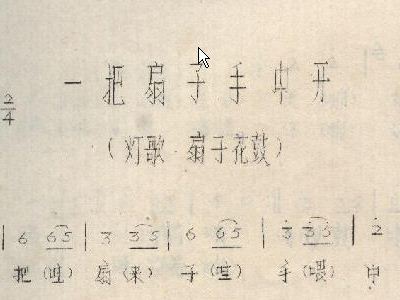 一把扇子手中开
2/4
(灯歌 扇子花鼓)
| 6 65 | 3 35 | 6 65 | 3 35 | 2
把 (哇) 扇 (来) 子 (哇) 手 (喂) 中